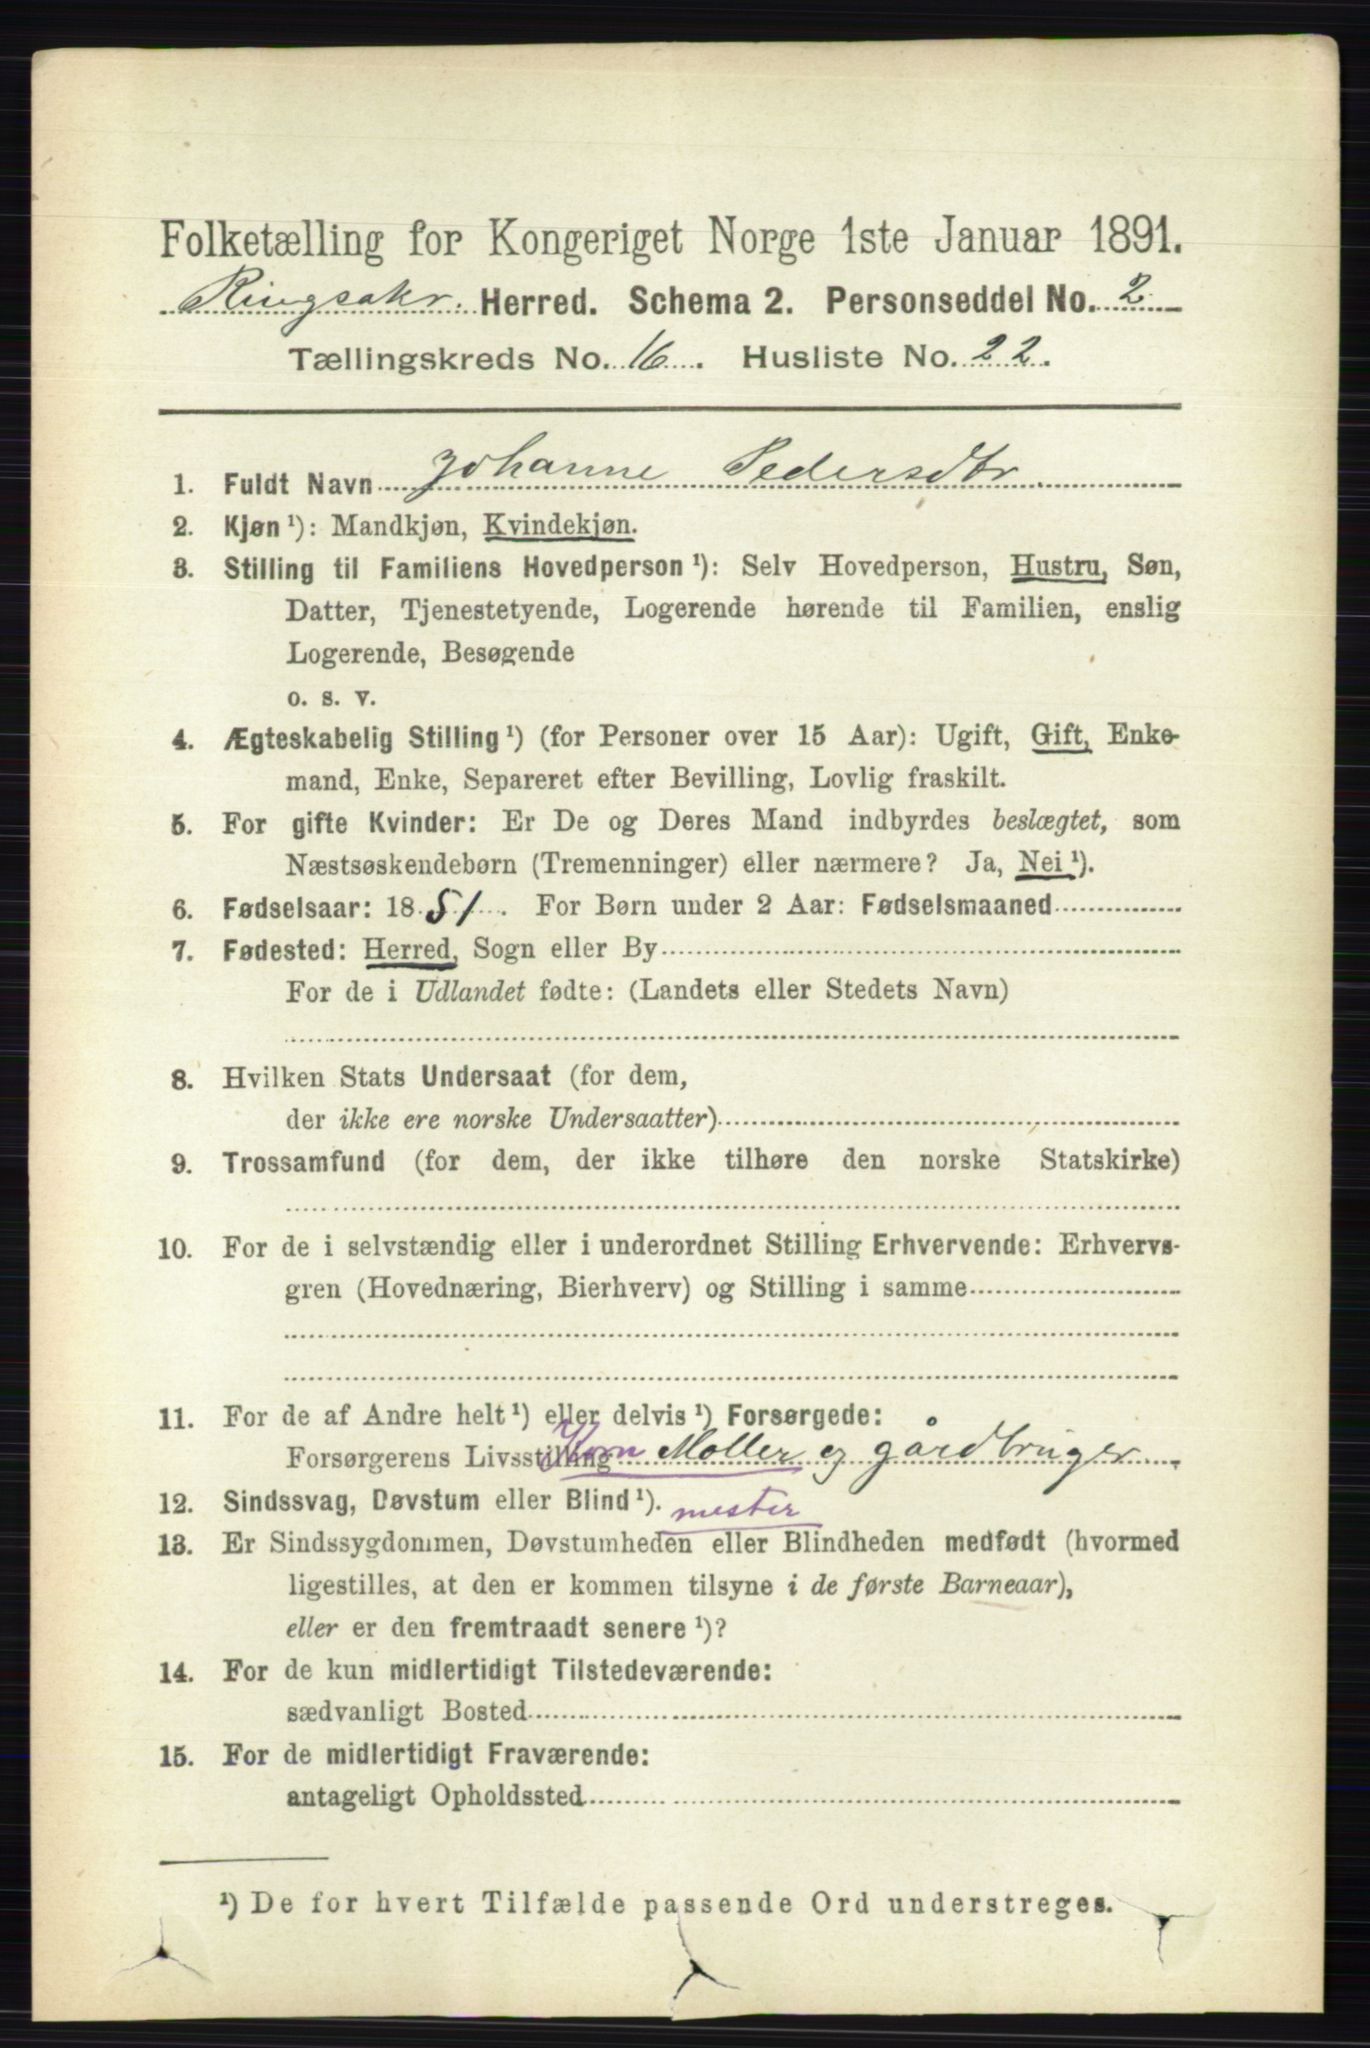 Folketælling for Kongeriget Norge 1ste Januar 1891.
Ringsakr. Herred. Schema 2. Personseddel No. 2
Tællingskreds No. 16. Husliste No. 22.
1. Fuldt Navn Johanne Pedersdtr
2. Kjøn ¹): Mandkjøn, Kvindekjøn.
3. Stilling til Familiens Hovedperson ¹): Selv Hovedperson, Hustru, Søn,
Datter, Tjenestetyende, Logerende hørende til Familien, enslig
Logerende, Besøgende
o. s. v.
4. Ægteskabelig Stilling ¹) (for Personer over 15 Aar): Ugift, Gift, Enke-
mand, Enke, Separeret efter Bevilling, Lovlig fraskilt.
5. For gifte Kvinder: Er De og Deres Mand indbyrdes beslægtet, som
Næstsøskendebørn (Tremenninger) eller nærmere? Ja, Nei ¹).
6. Fødselsaar: 1851. For Børn under 2 Aar: Fødselsmaaned
7. Fødested: Herred, Sogn eller By
For de i Udlandet fødte: (Landets eller Stedets Navn)
8. Hvilken Stats Undersaat (for dem,
der ikke ere norske Undersaatter)
9. Trossamfund (for dem, der ikke tilhøre den norske Statskirke)
10. For de i selvstændig eller i underordnet Stilling Erhvervende: Erhvervs-
gren (Hovednæring, Bierhverv) og Stilling i samme
11. For de af Andre helt ¹) eller delvis ¹) Forsørgede:
Forsørgerens Livsstilling Korn Møller og gårdbruger
12. Sindssvag, Døvstum eller Blind ¹). mester
13. Er Sindssygdommen, Døvstumheden eller Blindheden medfødt (hvormed
ligestilles, at den er kommen tilsyne i de første Barneaar),
eller er den fremtraadt senere ¹)?
14. For de kun midlertidigt Tilstedeværende:
sædvanligt Bosted
15. For de midlertidigt Fraværende:
antageligt Opholdssted
¹) De for hvert Tilfælde passende Ord understreges.